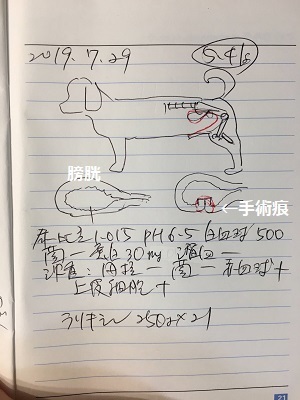 2019.7.29 5.4kg
膀胱
←手術痕
尿比重1.015 PH6.5 白血球500
菌ー蛋白30mg 潜血ー
沈査:円柱ー菌ー赤血球+
上皮細胞+
ラリキシン250g×21
21